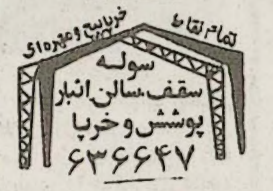 تمام نقاط
خرپا پیچ و مهره‌ای
سوله
سقف، سالن، انبار
پوشش و خرپا
۶۳۶۶۴۷